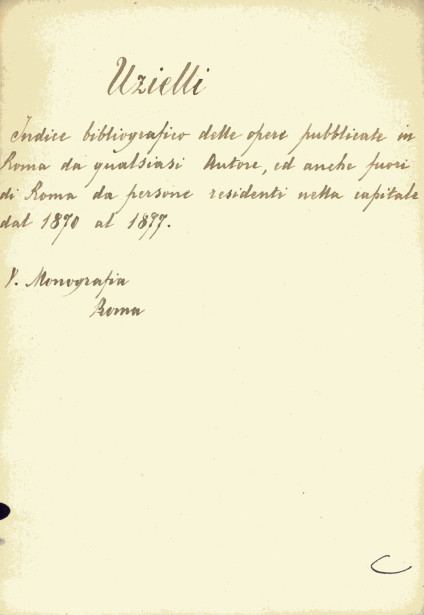 Uzielli
Indice bibliografico delle opere pubblicate in
Roma da qualsiasi Autore, ed anche fuori
di Roma da persone residenti nella capitale
dal 1870 al 1877.
V. Monografia
Roma
C